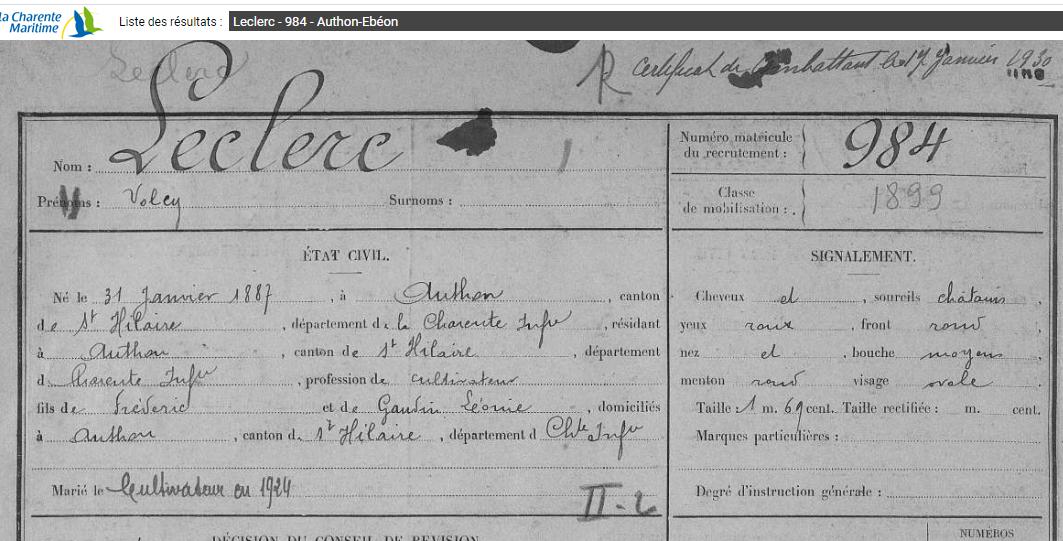 la Charente Maritime
Liste des résultats : Leclerc - 984 - Authon-Ebéon
Leclerc
R Certificat de Combattant le 17 Janvier 1930
Nom : Leclerc
Numéro matricule du recrutement : 984
Prénoms : Volcy Surnoms :
Classe de mobilisation : 1899
ÉTAT CIVIL.
Né le 31 Janvier 1887, à Authon, canton
de St Hilaire, département de la Charente Infre, résidant
à Authon, canton de St Hilaire, département
d Charente Infre, profession de cultivateur
fils de Fréderic et de Gaudin Léonie, domiciliés
à Authon, canton d St Hilaire, département d Chte Infre
Marié le Cultivateur en 1924
II-2
SIGNALEMENT.
Cheveux et, sourcils châtains,
yeux roux, front rond
nez et, bouche moyens,
menton rond visage ovale
Taille : 1 m. 69 cent. Taille rectifiée : m. cent.
Marques particulières :
Degré d'instruction générale :
DÉCISION DU CONSEIL DE REVISION
NUMÉROS